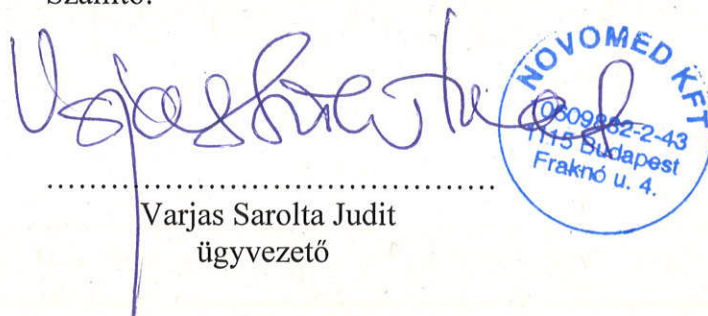 NOVOMED KFT
1115 Budapest
Fraknó u. 4.
........................................
Varjas Sarolta Judit
ügyvezető